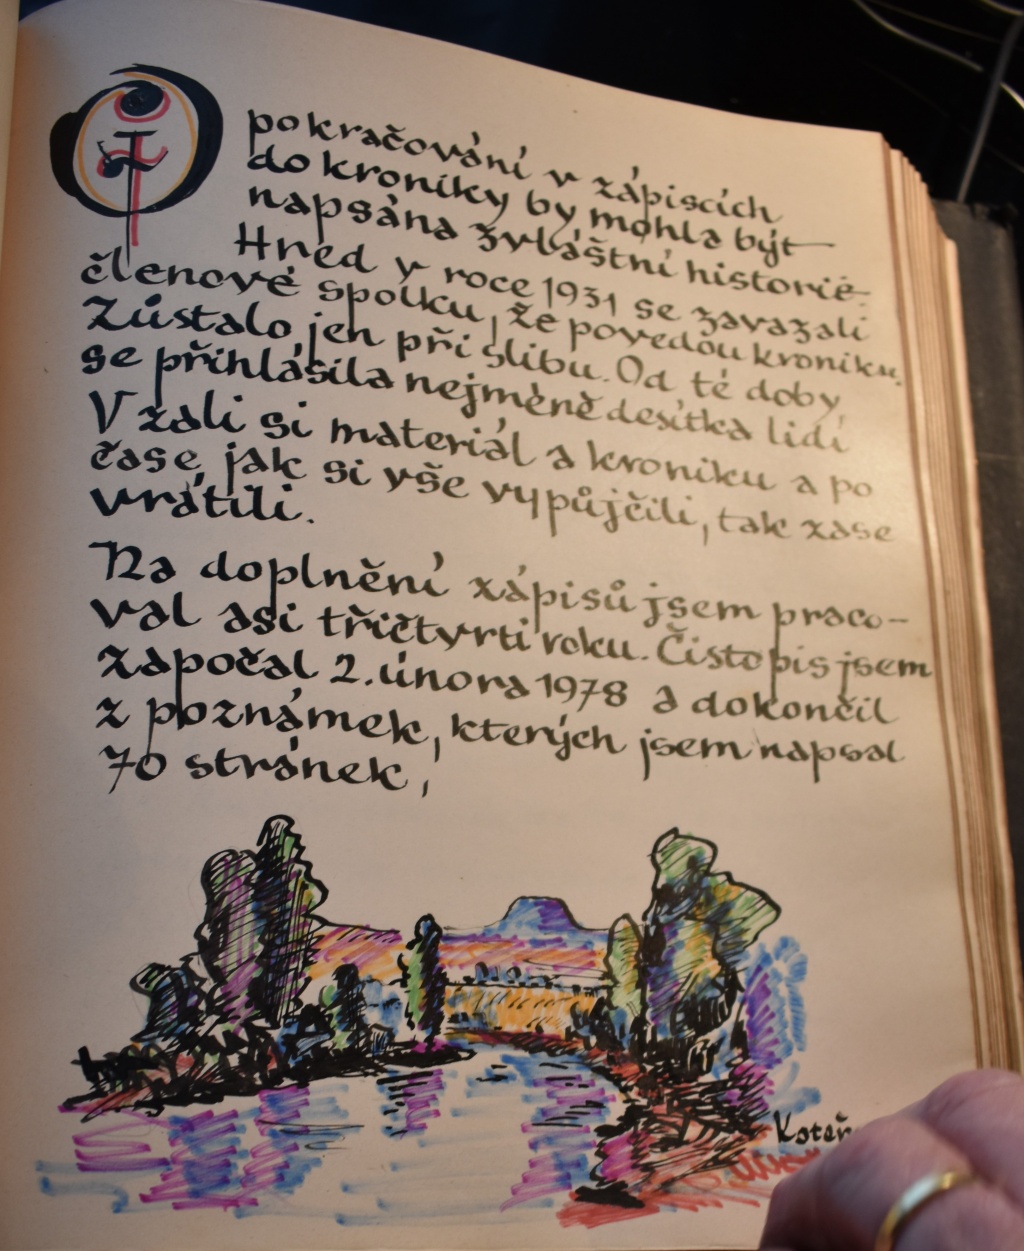 O pokračování v zápiscích
do kroniky by mohla být
napsána zvláštní historie.
Hned v roce 1931 se zavázali
členové spolku, že povedou kroniku.
Zůstalo jen při slibu. Od té doby
se přihlásila nejméně desítka lidí
Vzali si materiál a kroniku a po
čase, jak si vše vypůjčili, tak zase
vrátili.
Na doplnění zápisů jsem praco-
val asi třičtvrti roku. Čistopis jsem
započal 2. února 1978 a dokončil
z poznámek, kterých jsem napsal
70 stránek,